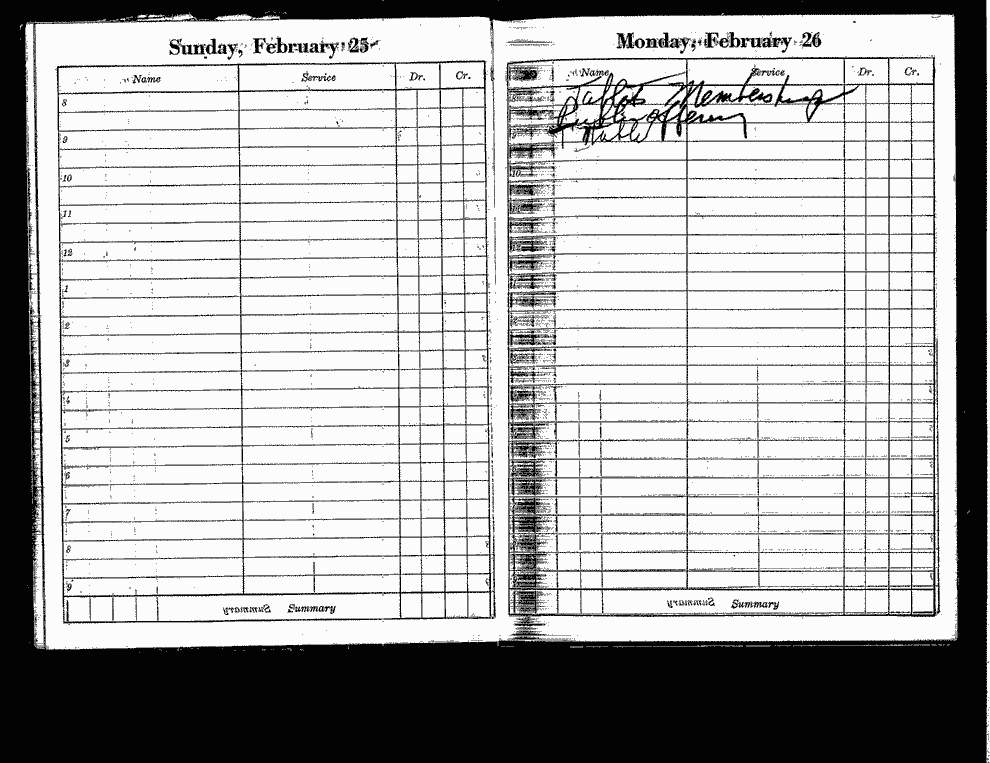 Sunday, February 25
Name Service Dr. Cr.
8
9
10
11
12
1
2
3
4
5
6
7
8
9
Summary
Monday, February 26
Name Service Dr. Cr.
Membership
offering
10
12
Summary